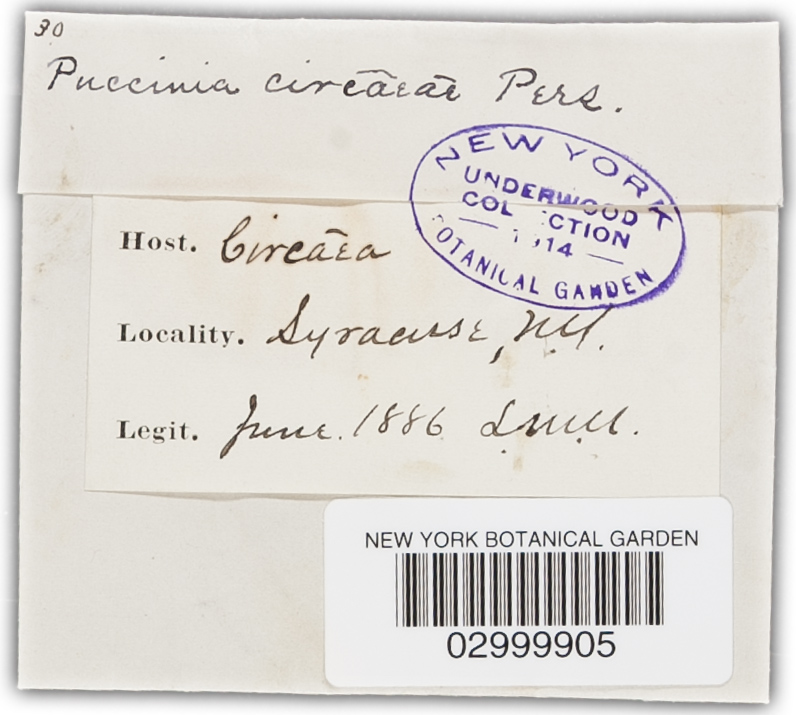 30
Puccinia circāeāe Pers.
NEW YORK
UNDERWOOD
COL CTION
1914
BOTANICAL GARDEN
Host. Circāea
Locality. Syracuse, N.Y.
Legit. June. 1886 L.M.U.
NEW YORK BOTANICAL GARDEN
02999905